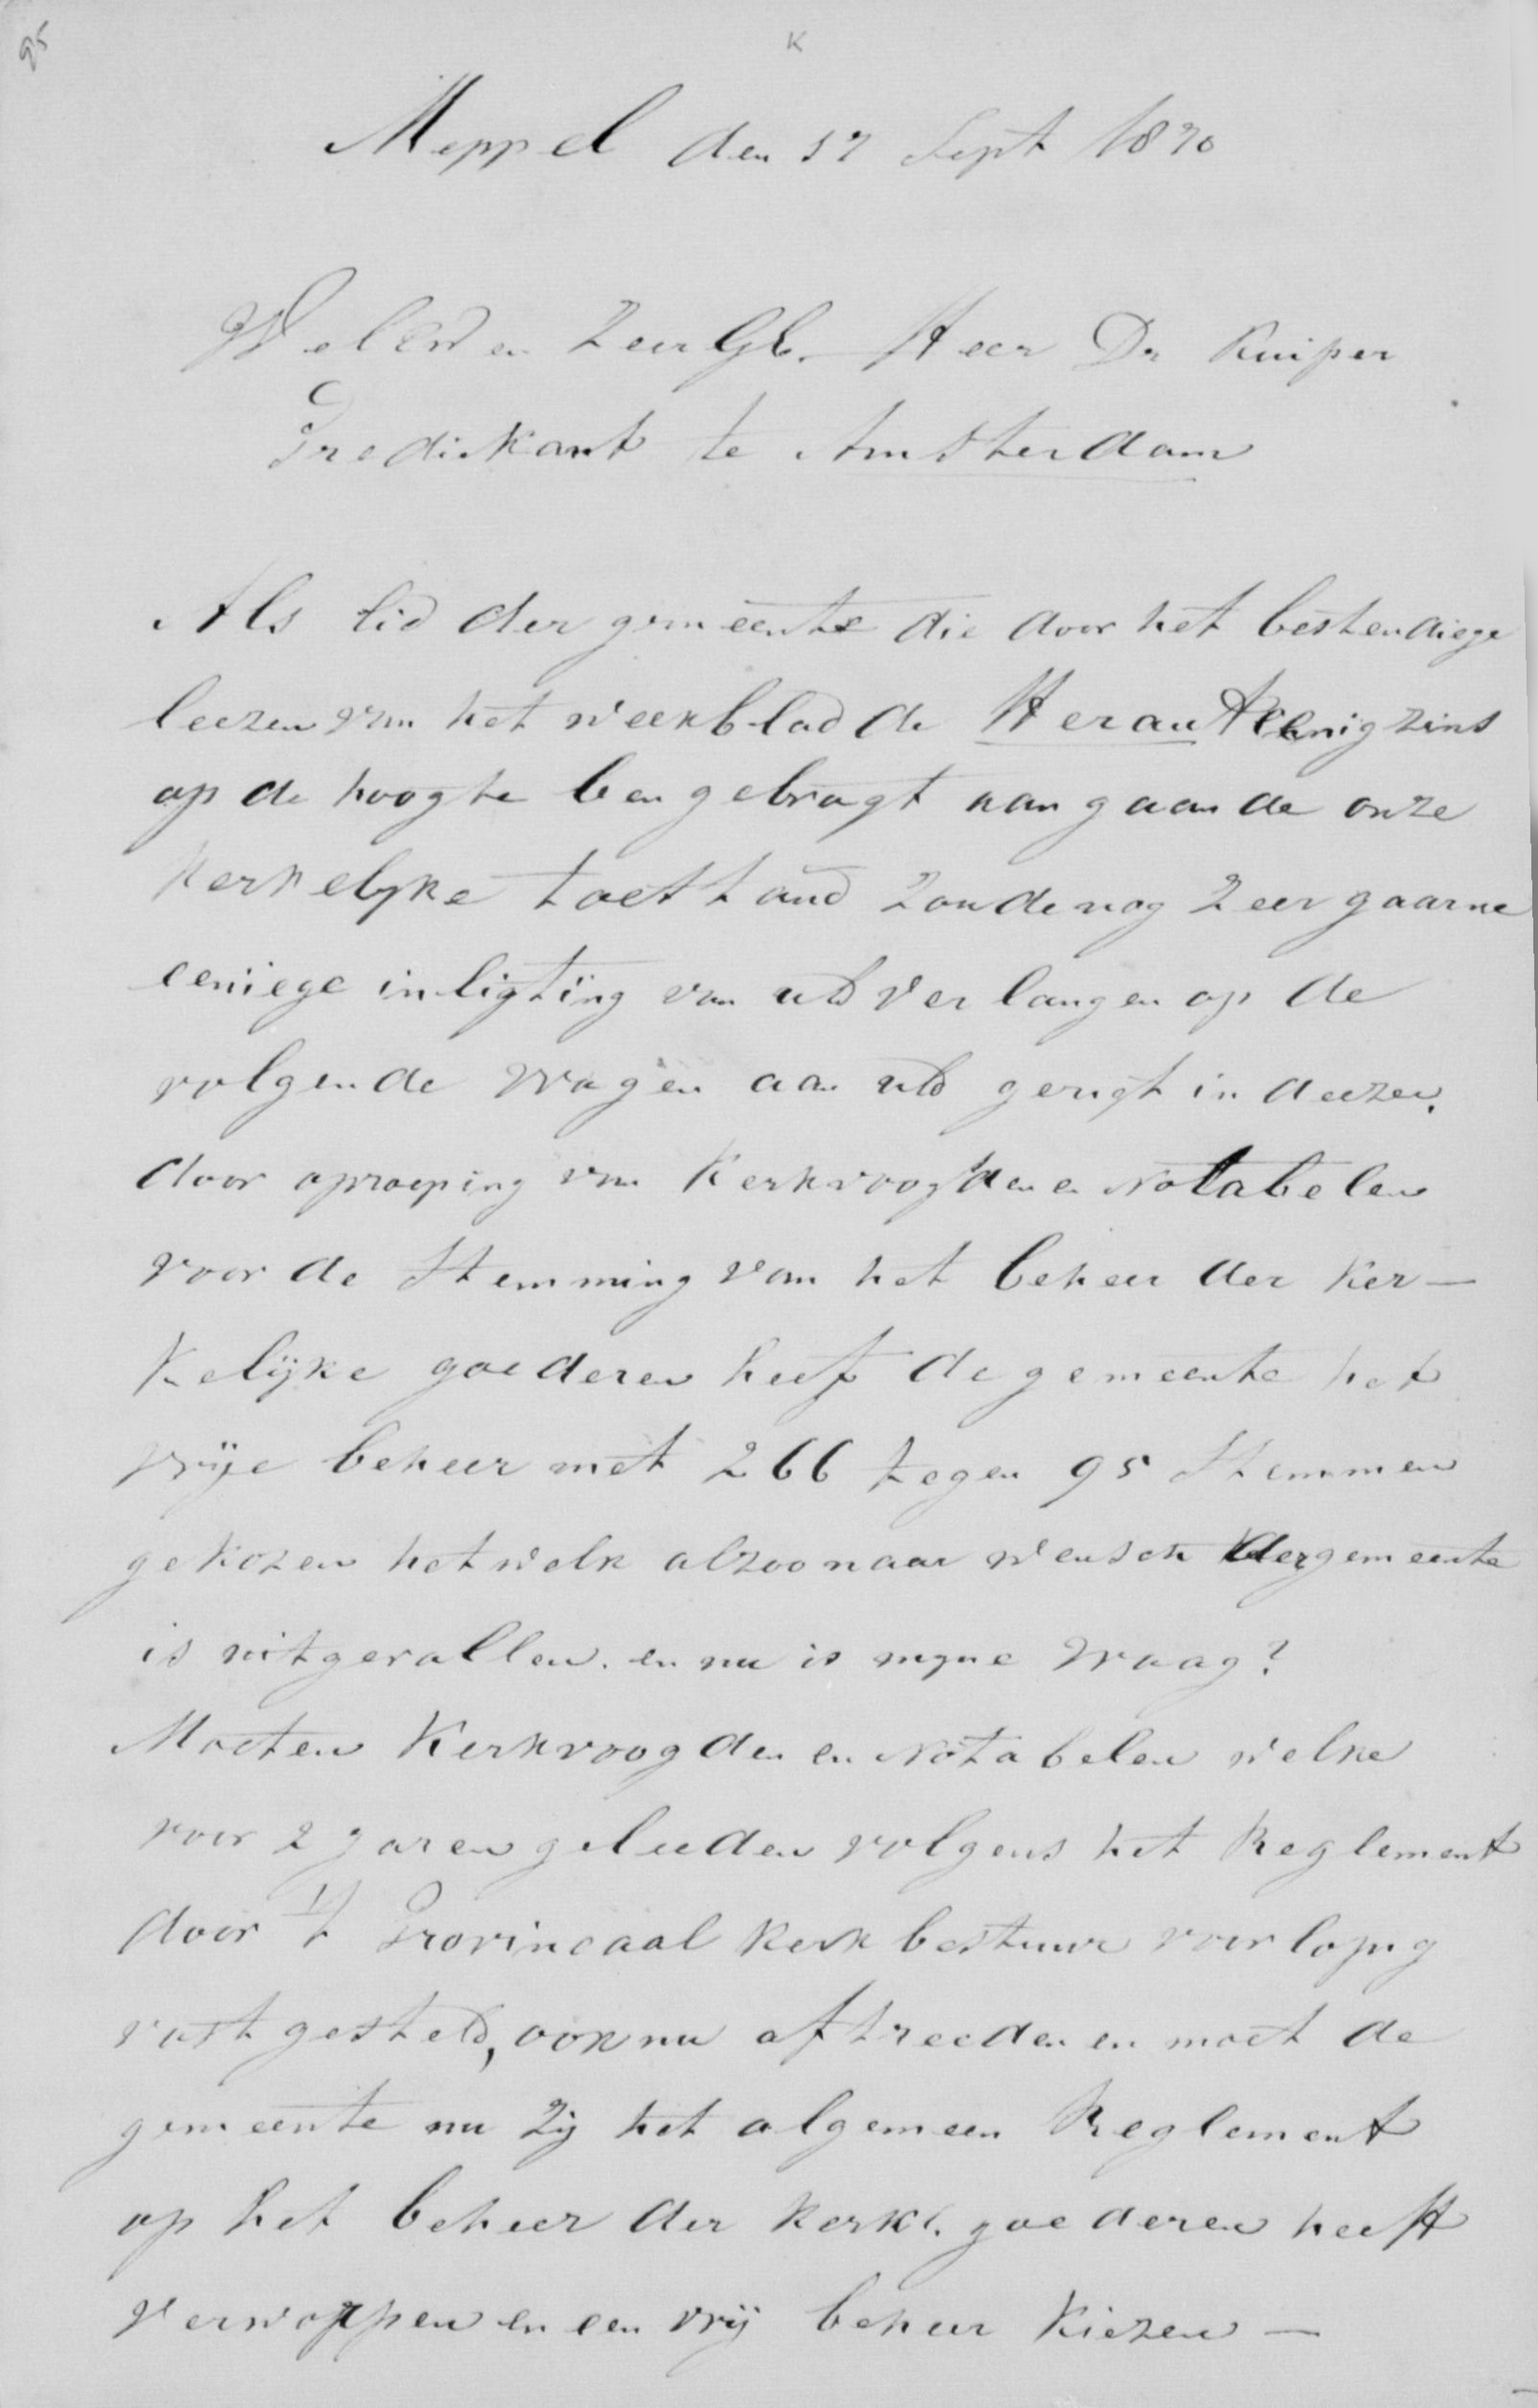 95
K
Meppel den 17 Sept 1870
WelEw en Zeer Gl. Heer Dr Kuiper
Predikant te Amsterdam
Als lid der gemeente die door het bestendiege
leezen van het weekblad de Heraut eenigzins
op de hoogte ben gebragt aangaande onze
kerkelyke toestand zoude nog zeer gaarne
eeniege inligting van uEd verlangen op de
volgende vragen aan uEd gerigt in deezen.
door oproeping van Kerkvoogden en Notabelen
voor de Stemming van het beheer der Ker-
kelijke goederen heeft de gemeente het
vrije beheer met 266 tegen 95 Stemmen
gekozen het welk alzoo naar wensch der gemeente
is uitgevallen. en nu is myne vraag?
Moeten Kerkvoogden en Notabelen welke
voor 2 jaren geleeden volgens het Reglement
door 't Provincaal kerk bestuur voorlopig
vast gesteld, ook nu aftreeden en moet de
gemeente nu Zij het algemeen Reglement
op het beheer der kerkl. goederen heeft
verworpen en een vrij beheer Kiezen —